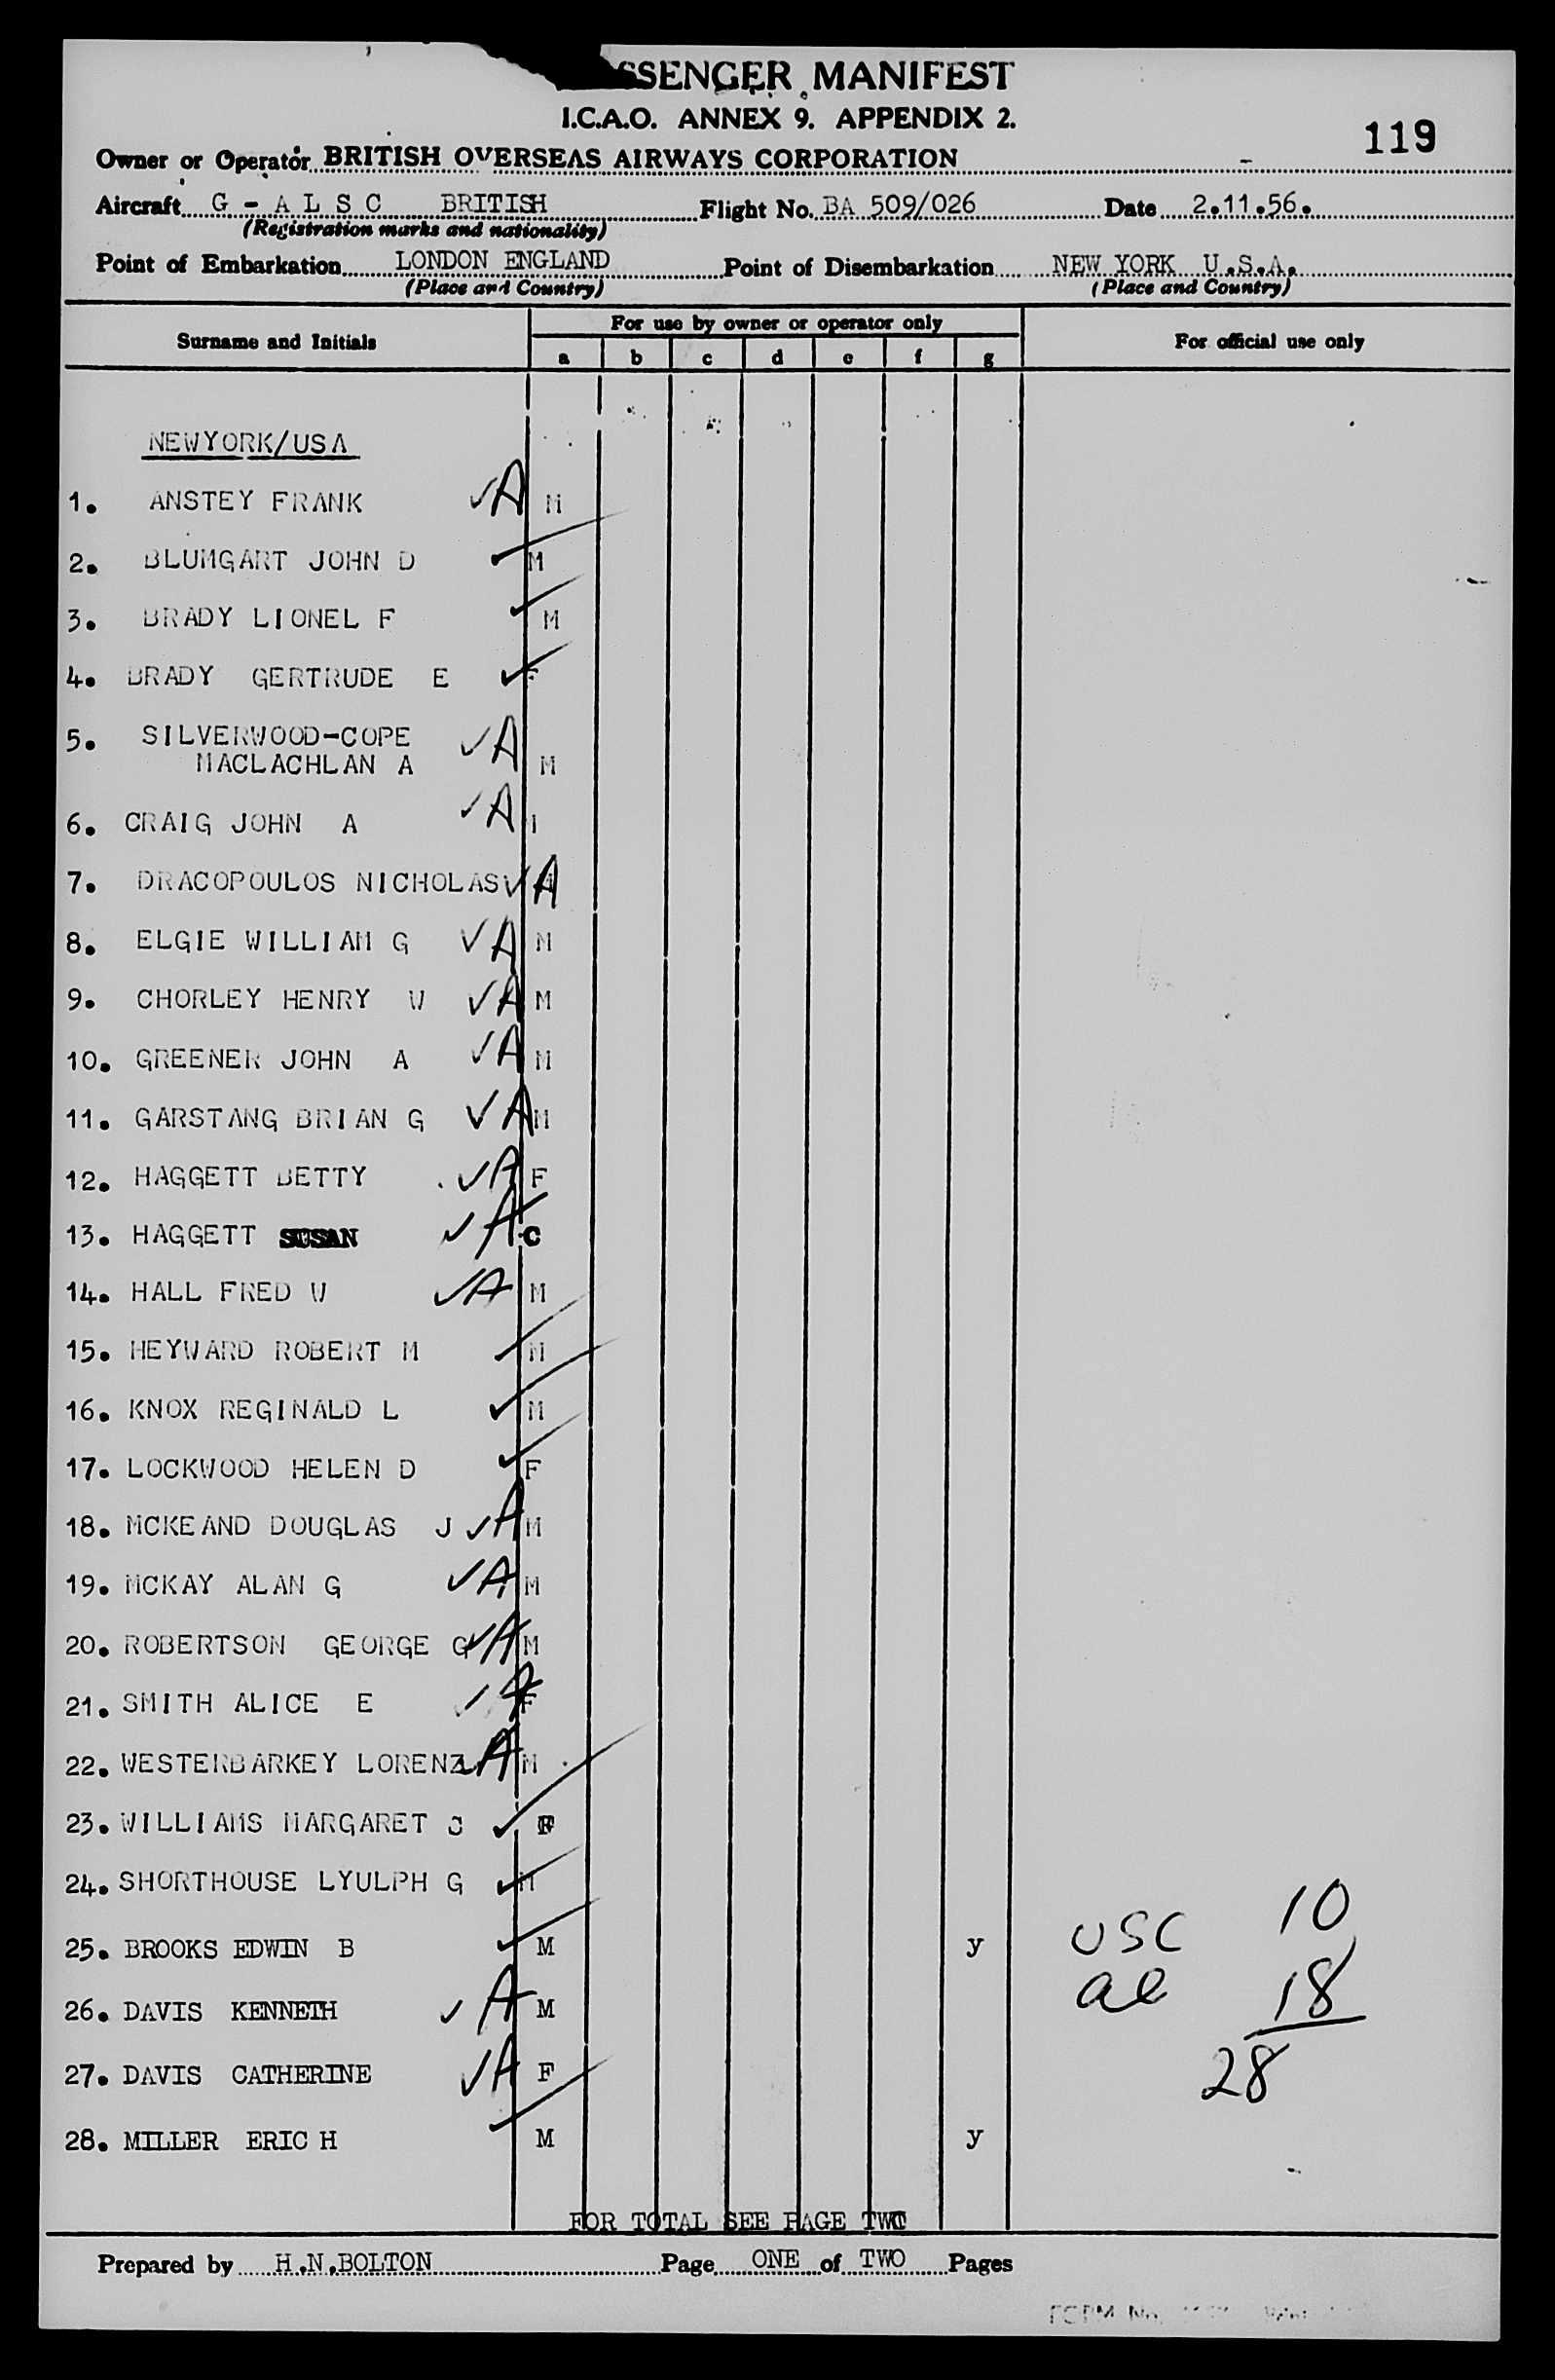 SSENGER MANIFEST
I.C.A.O. ANNEX 9. APPENDIX 2.
119
Owner or Operator BRITISH OVERSEAS AIRWAYS CORPORATION
Aircraft G - A L S C BRITISH Flight No. BA 509/026 Date 2.11.56.
(Registration marks and nationality)
Point of Embarkation LONDON ENGLAND Point of Disembarkation NEW YORK U.S.A.
(Place and Country) (Place and Country)
Surname and Initials For use by owner or operator only For official use only
a b c d e f g
NEWYORK/USA
1. ANSTEY FRANK ✓A M
2. BLUMGART JOHN D ✓ M
3. BRADY LIONEL F ✓ M
4. BRADY GERTRUDE E ✓ F
5. SILVERWOOD-COPE ✓A
MACLACHLAN A M
6. CRAIG JOHN A ✓A
7. DRACOPOULOS NICHOLAS ✓A
8. ELGIE WILLIAM G ✓A M
9. CHORLEY HENRY W ✓A M
10. GREENER JOHN A ✓A M
11. GARSTANG BRIAN G ✓A M
12. HAGGETT BETTY ✓A F
13. HAGGETT SUSAN ✓A C
14. HALL FRED W ✓A M
15. HEYWARD ROBERT M ✓ M
16. KNOX REGINALD L ✓ M
17. LOCKWOOD HELEN D ✓ F
18. MCKEAND DOUGLAS J ✓A M
19. MCKAY ALAN G ✓A M
20. ROBERTSON GEORGE G ✓A M
21. SMITH ALICE E ✓A F
22. WESTERBARKEY LORENZ ✓A M
23. WILLIAMS MARGARET C ✓ F
24. SHORTHOUSE LYULPH G ✓ M
25. BROOKS EDWIN B ✓ M y USC 10
26. DAVIS KENNETH ✓A M al 18
27. DAVIS CATHERINE ✓A F 28
28. MILLER ERIC H ✓ M y
FOR TOTAL SEE PAGE TWO
Prepared by H.N.BOLTON Page ONE of TWO Pages
FORM No.